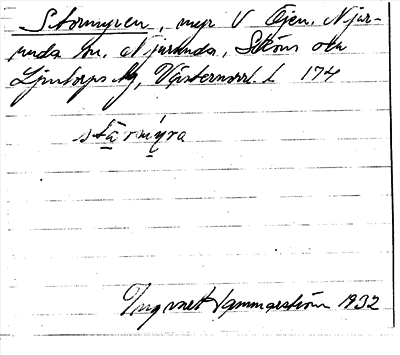 Stormyren, myr V Öjen, Njur-
unda sn, Njurunda, Sköns och
Ljustorps tg, Västernorrl. l 174
stårmyra
Ingvart Hammarström 1932